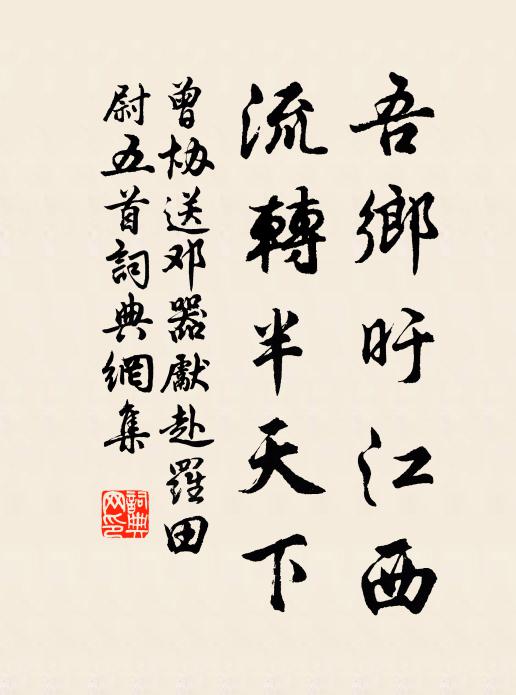 吾鄉盱江西
流轉半天下
曾協送邓器獻赴羅田
尉五首詞典網集
詞典網印